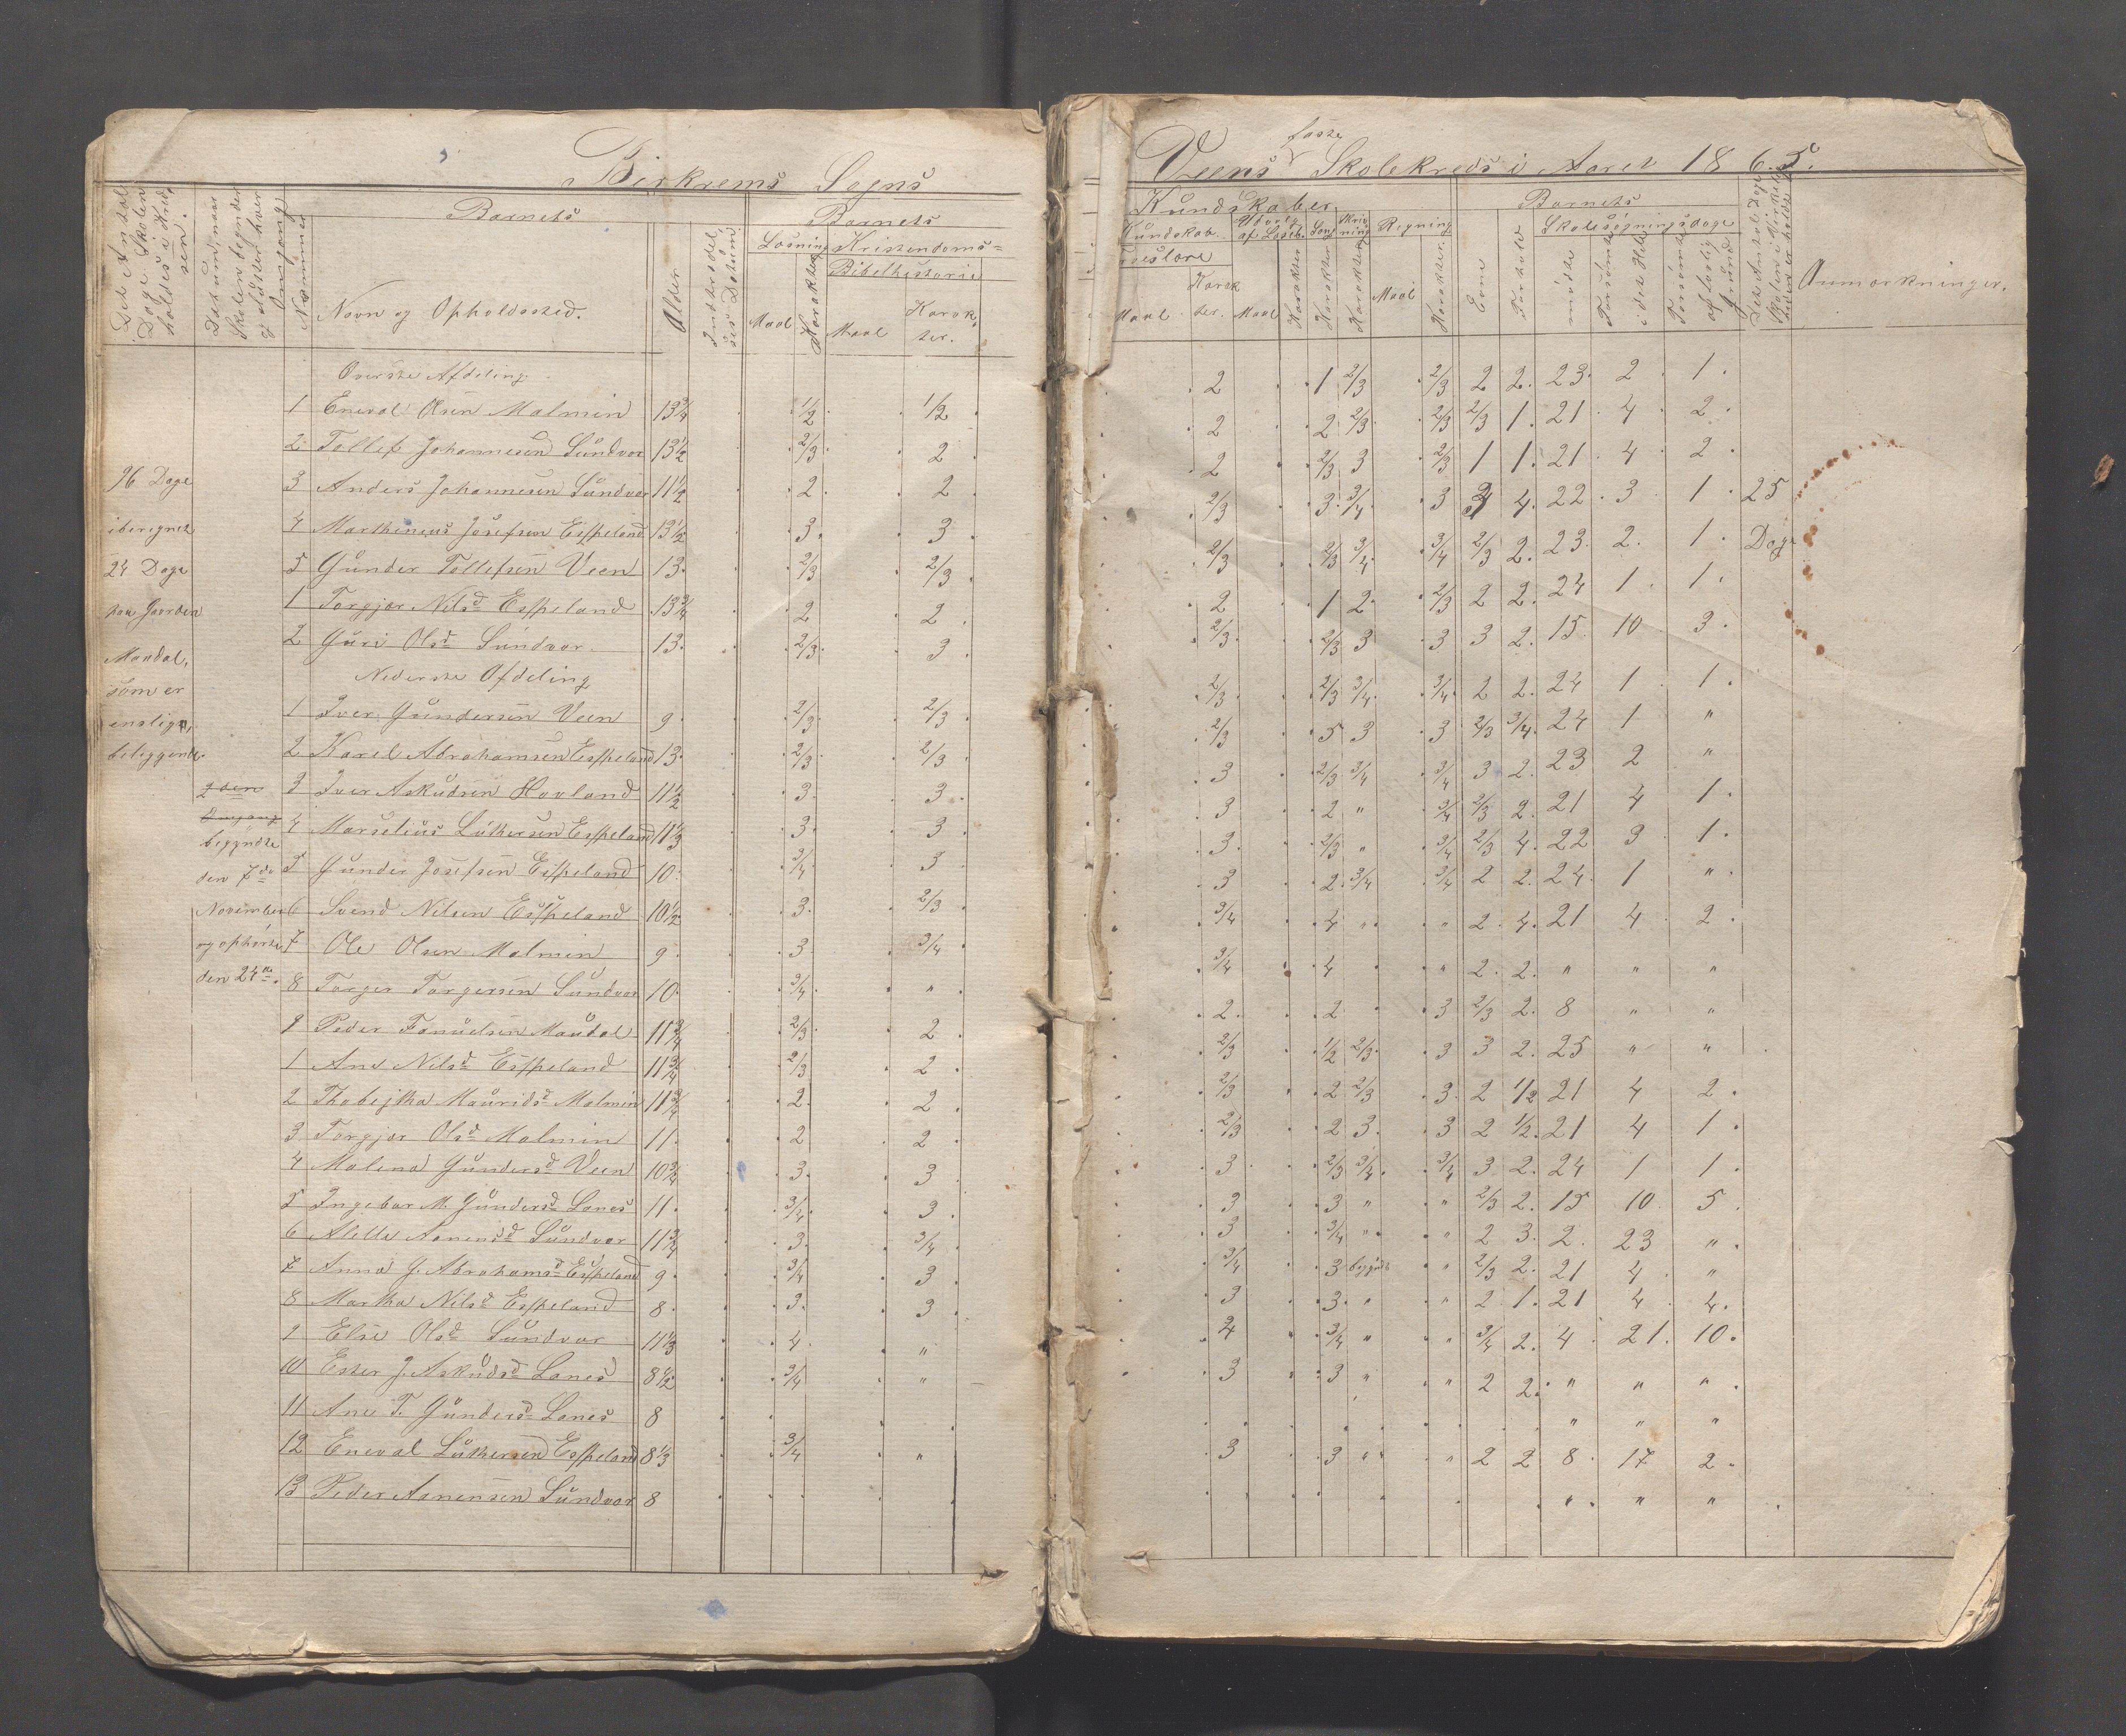 Birkrems Sogns
Det Antal Dage Skolen holdes i Kredsen.
Datum naar Skolen begynder og slutter hver Omgang
Nummer
Barnets
Navn og Opholdssted.
Alder
Indtrædelses Datum
Barnets
Læsning
Kristendoms=
Bibelhistorie
Maal
Karakter
Maal
Karakter.
Øverste Afdeling
1 Eneval Olsen Malmin 13¾ ½ ½
2 Tollef Johannesen Sundvor 13½ 2/3 2
3 Anders Johannesen Sundvor 11½ 2 2
4 Marthinius Josefsen Espeland 13½ 3 3
5 Gunder Tollefsen Veen 13 2/3 2/3
1 Torgjer Nilsd Espeland 13¾ 2 2
2 Guri Olsd Sundvor 13 2/3 3
Nederste Afdeling
1 Iver Gundersen Veen 9 2/3 2/3
2 Karel Abrahamsen Espeland 13 2/3 2/3
3 Iver Askudsen Hovland 11½ 3 3
4 Marselius Luthersen Espeland 11⅓ 3 3
5 Gunder Josefsen Espeland 10 3/4 3
6 Svend Nilsen Espeland 10½ 3 2/3
7 Ole Olsen Malmin 9 3 3/4
8 Torger Torgersen Sundvor 10 3/4 "
9 Peder Tønnesen Maudal 11¾ 2/3 2
1 Ane Nilsd Espeland 11¾ 2/3 2
2 Thobejtha Mauridsd Malmin 11¾ 2 2
3 Torgjer Olsd Malmin 11 2 2
4 Malena Gundersd Veen 10¾ 3 3
5 Ingebor M. Gundersd Lones 11 3/4 3
6 Alette Aanensd Sundvor 11¾ 3 3/4
7 Anna G. Abrahamsd Espeland 9 3/4 3
8 Martha Nilsd Espeland 8 3 3
9 Else Olsd Sundvor 11⅓ 4 "
10 Ester J. Askudsd Lones 8½ 3/4 "
11 Ane T. Gundersd Lones 8
12 Eneval Luthersen Espeland 8⅓ 3/4 "
13 Peder Aanensen Sundvor 8
26 Dage
iberegnet
24 Dage
paa Gaarden
Maudal,
som er
ensligen,
beliggende.
2den
Omgang
begyndte
den 7de
November
og ophørte
den 24de.
faste
Veens Skolekreds i Aaret 1865.
Kundskaber.
Kundskab.
Udvalg af Læseb.
Sang
Skrivning
Regning
Maal
Karakter.
Maal
Karakter
Karakter
Karakter
Maal
Karakter.
Barnets
Evne
Forhold
Skolesøgningsdage
mødte
Forsømte i det Hele
Forsømte af lovlig Grund
Anmærkninger.
2 1 2/3 2/3 2 2 23 2 1
2 2 2/3 2/3 2/3 1 21 4 2
2 2/3 3 2/3 1 1 21 4 2
2/3 3 3/4 3 3 4 22 3 1 25
2/3 2/3 3/4 3/4 2/3 2 23 2 1 Dage
2 1 2 2/3 2 2 24 1 1
2/3 2/3 3 3 3 2 15 10 3
2/3 2/3 3/4 3/4 2 2 24 1 1
2/3 5 3 3 2/3 3/4 24 1 "
3 2/3 3/4 3/4 3 2 23 2 "
3 2 " 3/4 2/3 2 21 4 1
3 2/3 " 3/4 2/3 4 22 3 1
3 2 3/4 3/4 2 2 24 1 "
3/4 4 " " 2 4 21 4 2
3/4 4 " 2 2 " " "
2 2 3 2/3 2 8 " "
2/3 ½ 2/3 3 3 2 25 " "
2/3 2 2/3 3 2 ½ 21 4 2
2/3 2 3 3 2 ½ 21 4 1
3 2/3 3/4 3/4 3 2 24 1 1
3 3 " " 2/3 2 15 10 5
3 3/4 " " 2 3 2 23 "
3/4 3 begyndt " 2/3 2 21 4 "
3 3 " " 2 1 21 4 4
4 3/4 " " 3/4 2 4 21 10
3 3 " " 2 2 " " "
" " "
3 3 " " 2 2 8 17 2
" " "